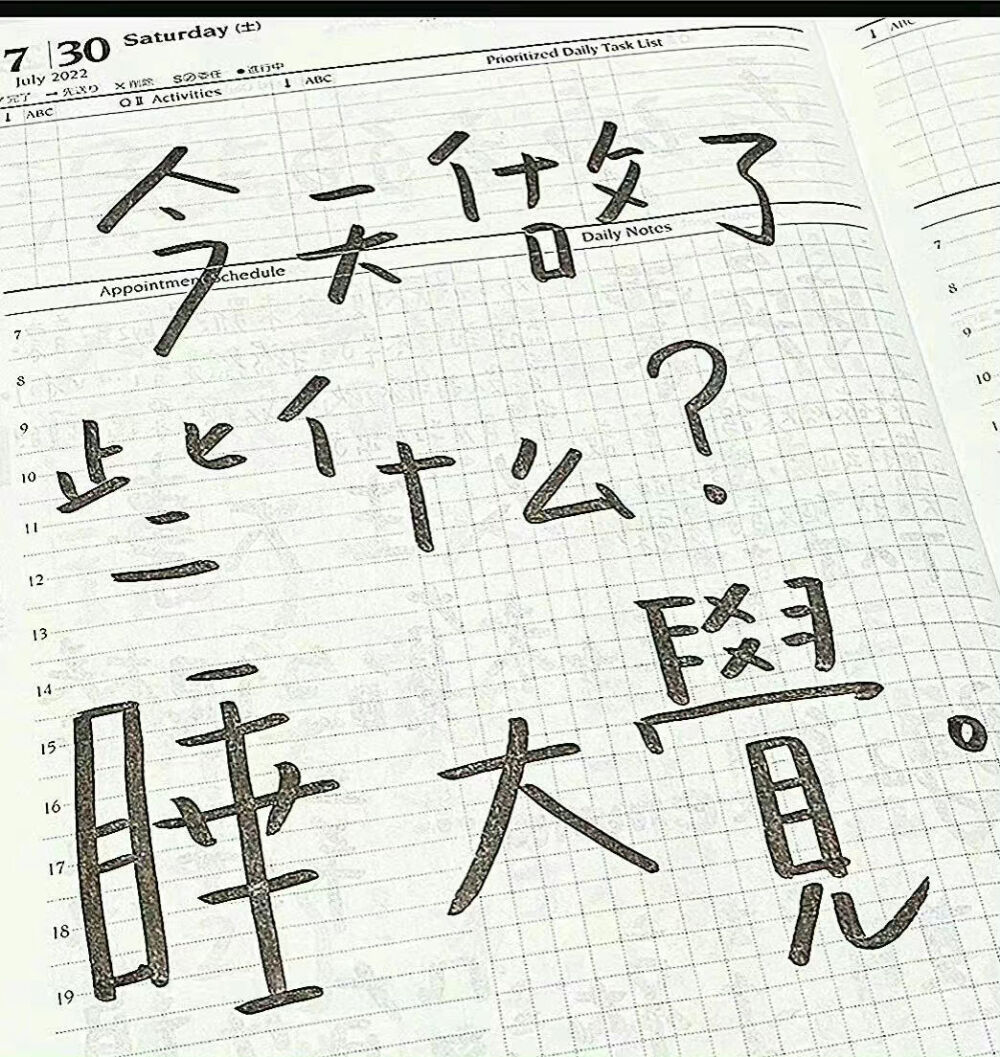 7 30 Saturday (土)
July 2022
完了 → 先送り × 削除 S⊘委任 ● 進行中
Prioritized Daily Task List
↓ ABC Activities ↓ ABC
↓ ABC
今天做了
Appointment Schedule Daily Notes
些什么?
睡大覺。
7
8
9
10
11
12
13
14
15
16
17
18
19
7
8
9
10